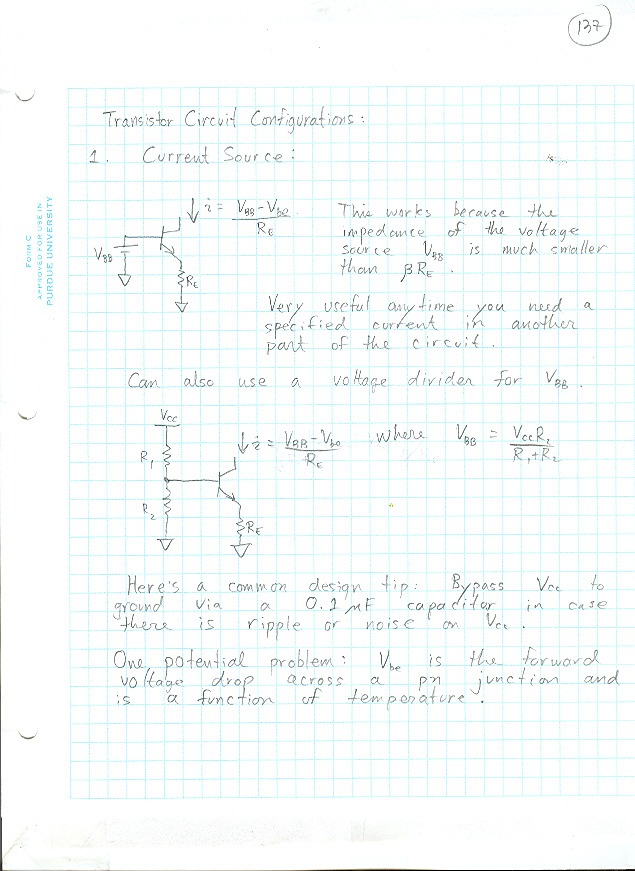 137
FORM C
APPROVED FOR USE IN
PURDUE UNIVERSITY
Transistor Circuit Configurations:
1. Current Source:
i = (V_BB - V_be) / R_E
V_BB
R_E
This works because the
impedance of the voltage
source V_BB is much smaller
than βR_E.
Very useful anytime you need a
specified current in another
part of the circuit.
Can also use a voltage divider for V_BB.
Vcc
R_1
R_2
R_E
i = (V_BB - V_be) / R_E where V_BB = (V_cc R_2) / (R_1 + R_2)
Here's a common design tip: Bypass Vcc to
ground via a 0.1 μF capacitor in case
there is ripple or noise on Vcc.
One potential problem: V_be is the forward
voltage drop across a pn junction and
is a function of temperature.